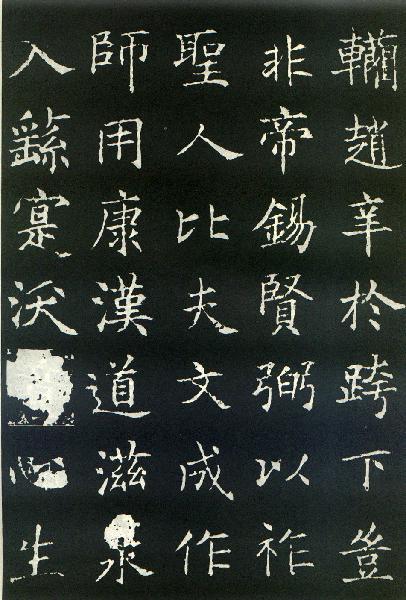 轥趙辛於跨下豈
非帝錫賢弼以祚
聖人比夫文成作
師用康漢道滋泉
入繇寔沃心生